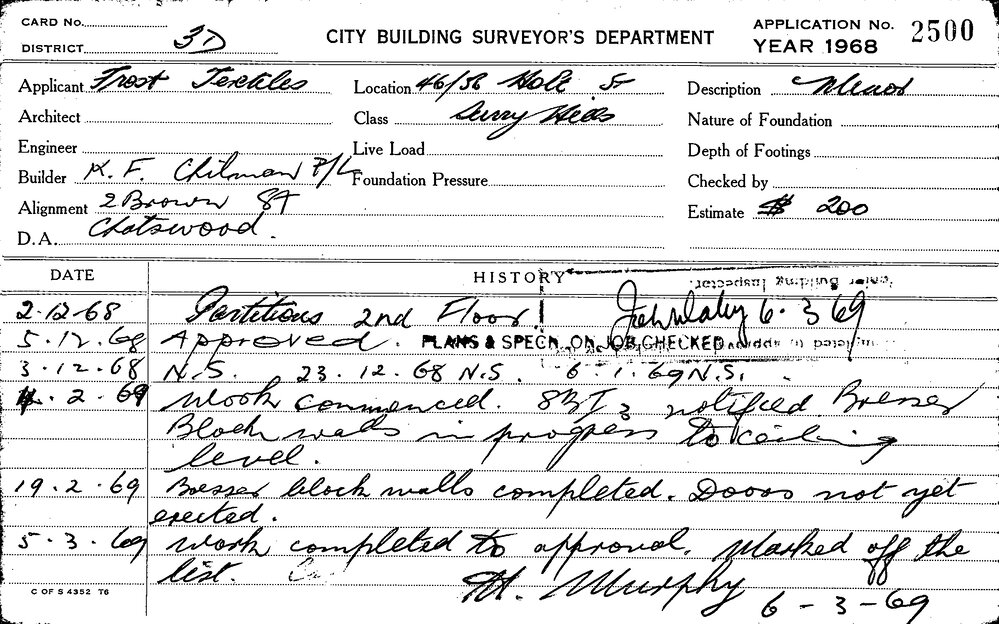 CARD No.
DISTRICT 3D
CITY BUILDING SURVEYOR'S DEPARTMENT
APPLICATION No. 2500
YEAR 1968
Applicant Frost Textiles
Location 46/56 Holt St
Description Minor
Architect
Class Surry Hills
Nature of Foundation
Engineer
Live Load
Depth of Footings
Builder K. F. Chilman P/L
Foundation Pressure
Checked by
Alignment 2 Brown St
Estimate $ 200
D.A. Chatswood.
DATE
HISTORY
Building Inspector.
2.12.68 Partitions 2nd Floor
6.3.69
5.12.68 Approved. PLANS & SPECN. ON JOB CHECKED
3.12.68 N.S. 23.12.68 N.S. 6.1.69 N.S.
4.2.69 Work commenced. SBI notified. Besser
Block walls in progress to ceiling
level.
19.2.69 Besser block walls completed. Doors not yet
erected.
5.3.69 Work completed to approval. Marked off the
list.
H. Murphy
6-3-69
C OF S 4352 T6